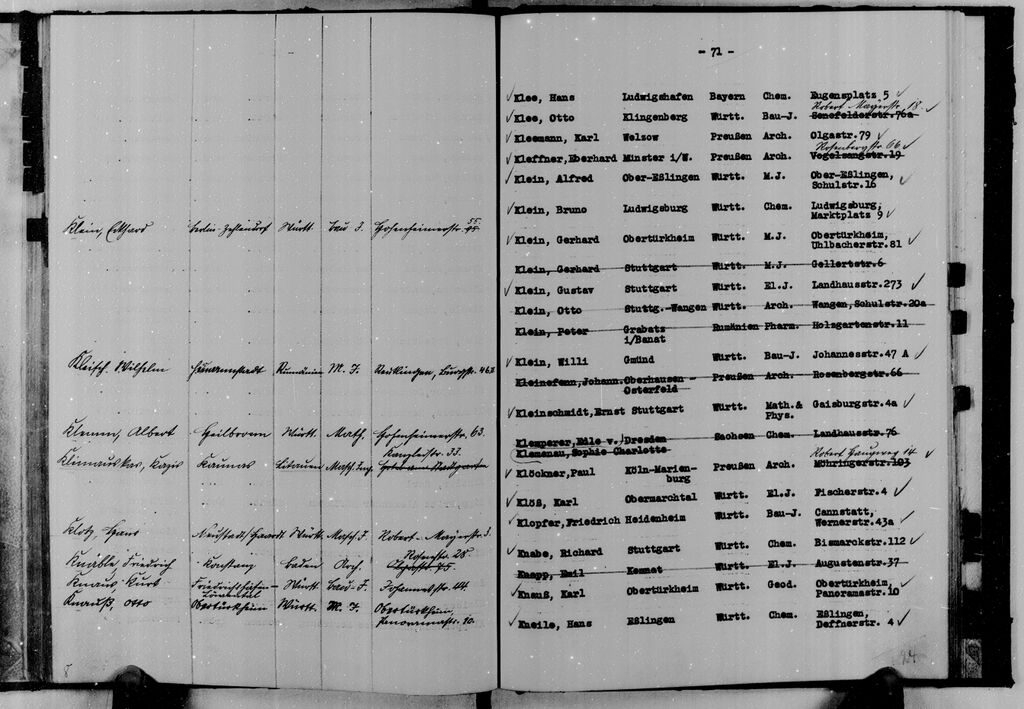 Klein, Ekhard Berlin-Zehlendorf Württ. Bau J. Hohenheimerstr. 55
Kleisch, Wilhelm Hermannstadt Rumänien M. J. Reutlingen, Burgstr. 46
Klemm, Albert Heilbronn Württ. Math. Hohenheimerstr. 63.
Kanzleistr. 33.
Kaunas Litauen Masch.Ing.
Klotz, Hans Neustadt/Haardt Württ. Masch.J. Robert-Mayerstr. 3.
Rosenstr. 28
Knäble, Friedrich Konstanz Baden Arch.
Knaus, Kurt Friedrichshafen- Württ. Bau-J. Johannesstr. 44.
Löwental
Knauß, Otto Obertürkheim Württ. M. J. Obertürkheim,
Panoramastr. 10.
8
- 71 -
Klee, Hans Ludwigshafen Bayern Chem. Eugensplatz 5
Robert Mayerstr. 18.
Klee, Otto Klingenberg Württ. Bau-J. Senefelderstr.76a
Kleemann, Karl Welzow Preußen Arch. Olgastr.79
Rosenbergstr. 66
Kleffner,Eberhard Münster i/W. Preußen Arch. Vogelsangstr.19
Klein, Alfred Ober-Eßlingen Württ. M.J. Ober-Eßlingen,
Schulstr.16
Klein, Bruno Ludwigsburg Württ. Chem. Ludwigsburg,
Marktplatz 9
Klein, Gerhard Obertürkheim Württ. M.J. Obertürkheim,
Uhlbacherstr.81
Klein, Gerhard Stuttgart Württ. M.J. Gellertstr.6
Klein, Gustav Stuttgart Württ. El.J. Landhausstr.273
Klein, Otto Stuttg.-Wangen Württ. Arch. Wangen,Schulstr.20a
Klein, Peter Grabatz Rumänien Pharm. Holzgartenstr.11
i/Banat
Klein, Willi Gmünd Württ. Bau-J. Johannesstr.47 A
Kleinefenn,Johann Oberhausen- Preußen Arch. Rosenbergstr.66
Osterfeld
Kleinschmidt,Ernst Stuttgart Württ. Math.& Gaisburgstr.4a
Phys.
Klemperer, v. Dresden Sachsen Chem. Landhausstr.76
Klemenau,Sophie Charlotte
Robert
14
Klöckner,Paul Köln-Marien- Preußen Arch. Möhringerstr.103
burg
Klöß, Karl Obermarchtal Württ. El.J. Fischerstr.4
Klopfer,Friedrich Heidenheim Württ. Bau-J. Cannstatt,
Wernerstr.43a
Knabe, Richard Stuttgart Württ. Chem. Bismarckstr.112
Knapp, Emil Kemnat Württ. El.J. Augustenstr.37
Knauß, Karl Obertürkheim Württ. Geod. Obertürkheim,
Panoramastr.10
Kneile, Hans Eßlingen Württ. Chem. Eßlingen,
Deffnerstr. 4